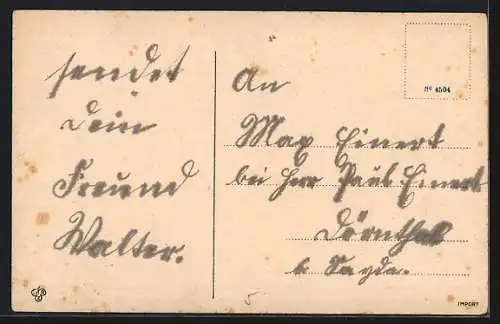 sendet
Dein
Freund
Walter.
An
Max Einert
bei Herr Paul Einert
Dörnthal
b. Sayda.
Nº 4504
5
IMPORT